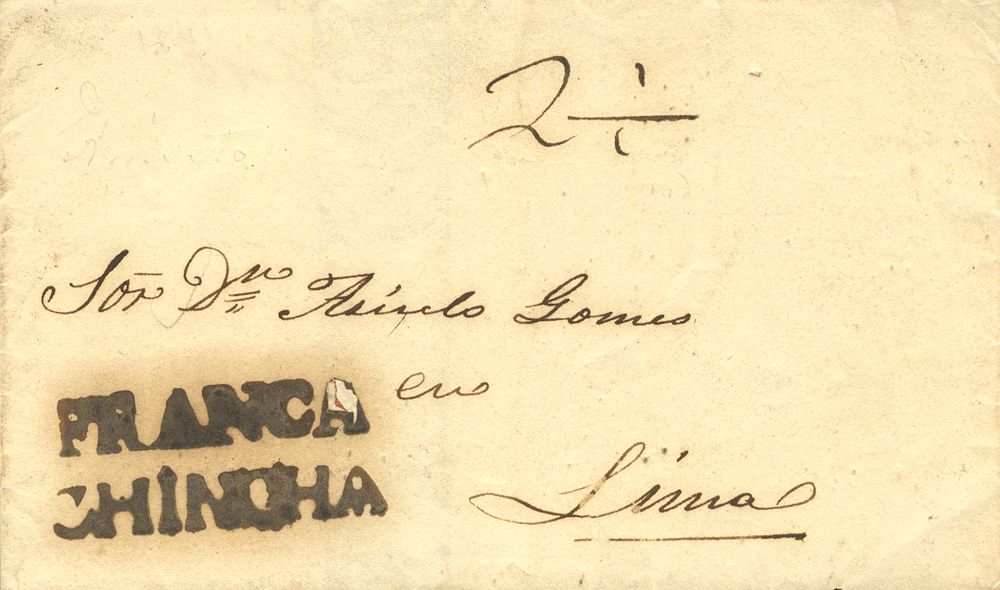 2 1/1
Sor Dn Gomes
FRANCA
en
CHINCHA
Lima